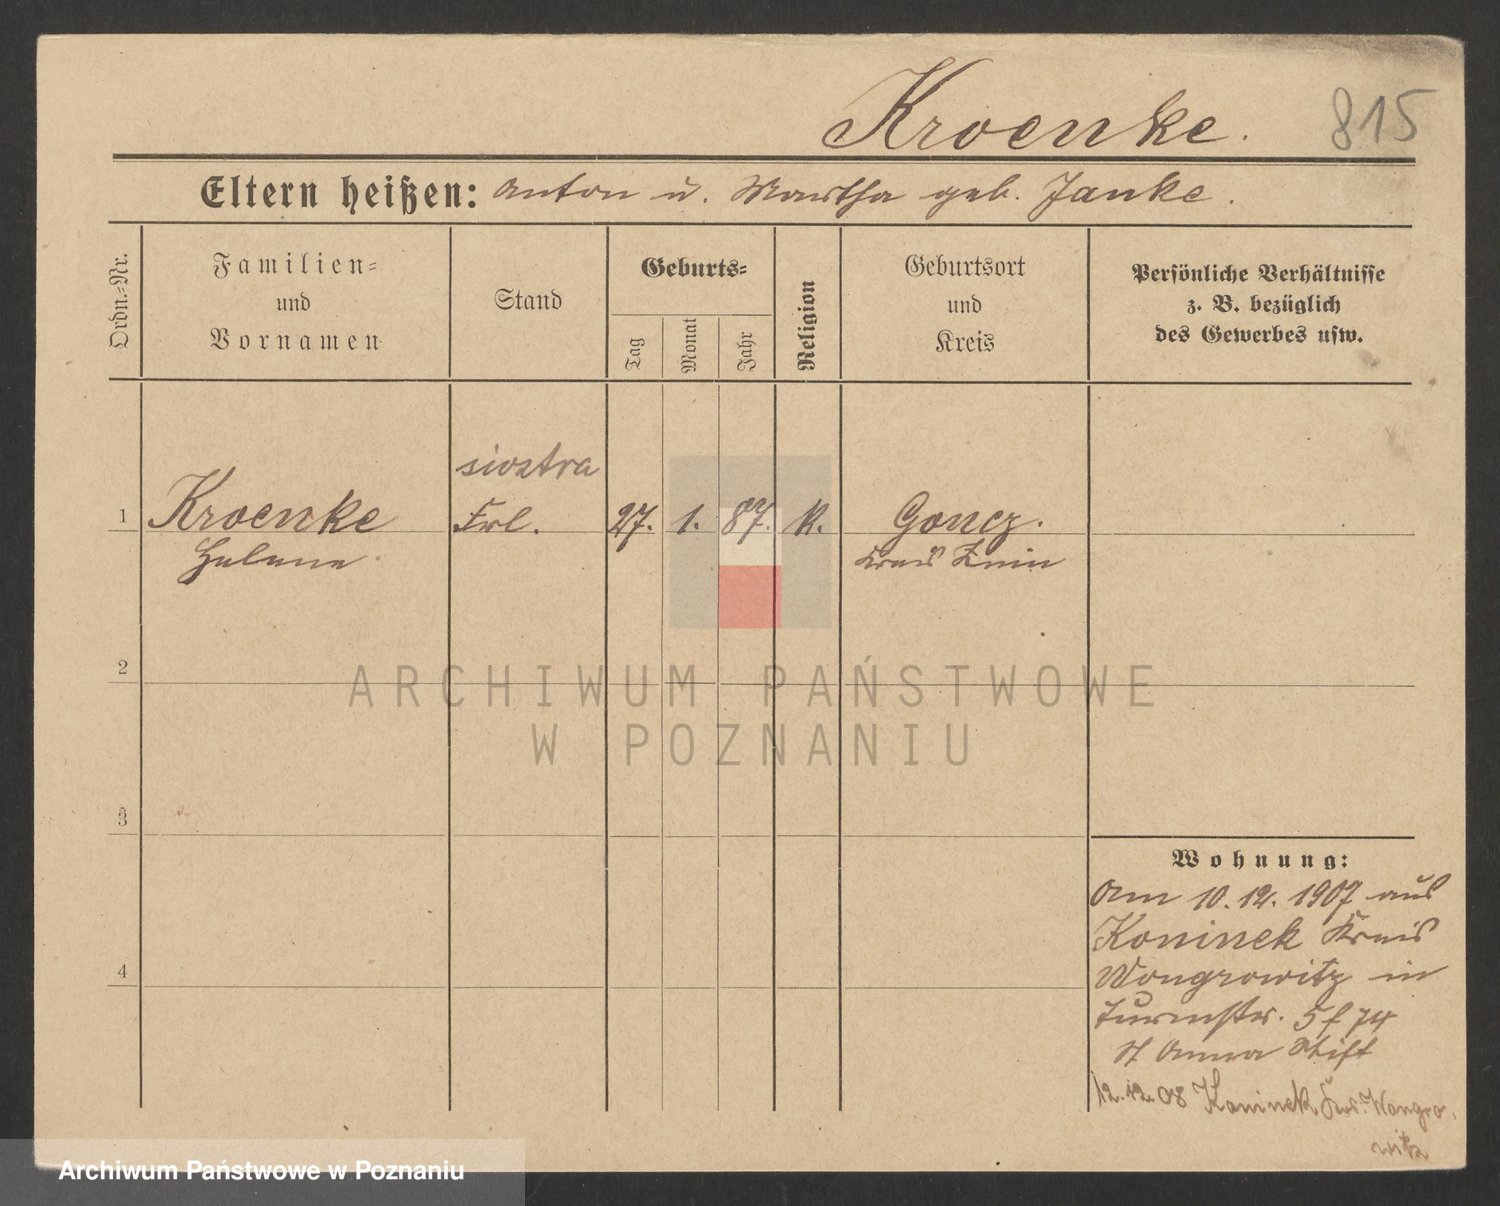 Kroenke. 815
Eltern heißen: Anton u. Martha geb. Janke.
Ordn.-Nr.
Familien-
und
Vornamen
Stand
Geburts-
Tag
Monat
Jahr
Religion
Geburtsort
und
Kreis
Persönliche Verhältnisse
z. B. bezüglich
des Gewerbes usw.
siostra
1 Kroenke Frl. 27. 1. 87. k. Goncz.
Helene Kreis Znin
2
ARCHIWUM PAŃSTWOWE
W POZNANIU
3
Wohnung:
Am 10.12.1907 aus
Koninek Kreis
4
Wongrowitz in
Turmstr. 5 f 74
St Anna Stift
12.12.08 Koninek Krs. Wongro-
witz
Archiwum Państwowe w Poznaniu